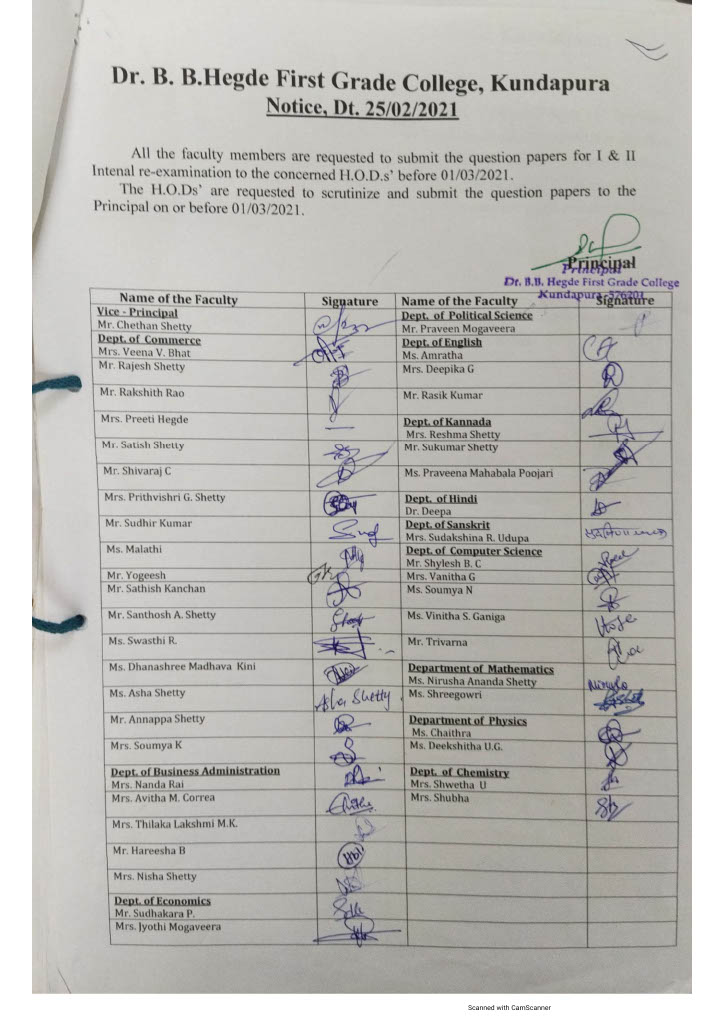 Dr. B. B.Hegde First Grade College, Kundapura
Notice, Dt. 25/02/2021
All the faculty members are requested to submit the question papers for I & II
Intenal re-examination to the concerned H.O.D.s' before 01/03/2021.
The H.O.Ds' are requested to scrutinize and submit the question papers to the
Principal on or before 01/03/2021.
Principal
Principal
Dr. B.B. Hegde First Grade College
Kundapura-576201
Name of the Faculty Signature
Vice - Principal
Mr. Chethan Shetty
Dept. of Commerce
Mrs. Veena V. Bhat
Mr. Rajesh Shetty
Mr. Rakshith Rao
Mrs. Preeti Hegde
Mr. Satish Shetty
Mr. Shivaraj C
Mrs. Prithvishri G. Shetty
Mr. Sudhir Kumar
Ms. Malathi
Mr. Yogeesh
Mr. Sathish Kanchan
Mr. Santhosh A. Shetty
Ms. Swasthi R.
Ms. Dhanashree Madhava Kini
Ms. Asha Shetty Asha Shetty
Mr. Annappa Shetty
Mrs. Soumya K
Dept. of Business Administration
Mrs. Nanda Rai
Mrs. Avitha M. Correa
Mrs. Thilaka Lakshmi M.K.
Mr. Hareesha B
Mrs. Nisha Shetty
Dept. of Economics
Mr. Sudhakara P.
Mrs. Jyothi Mogaveera
Name of the Faculty Signature
Dept. of Political Science
Mr. Praveen Mogaveera
Dept. of English
Ms. Amratha
Mrs. Deepika G
Mr. Rasik Kumar
Dept. of Kannada
Mrs. Reshma Shetty
Mr. Sukumar Shetty
Ms. Praveena Mahabala Poojari
Dept. of Hindi
Dr. Deepa
Dept. of Sanskrit
Mrs. Sudakshina R. Udupa
Dept. of Computer Science
Mr. Shylesh B. C
Mrs. Vanitha G
Ms. Soumya N
Ms. Vinitha S. Ganiga
Mr. Trivarna
Department of Mathematics
Ms. Nirusha Ananda Shetty
Ms. Shreegowri
Department of Physics
Ms. Chaithra
Ms. Deekshitha U.G.
Dept. of Chemistry
Mrs. Shwetha U
Mrs. Shubha
Scanned with CamScanner